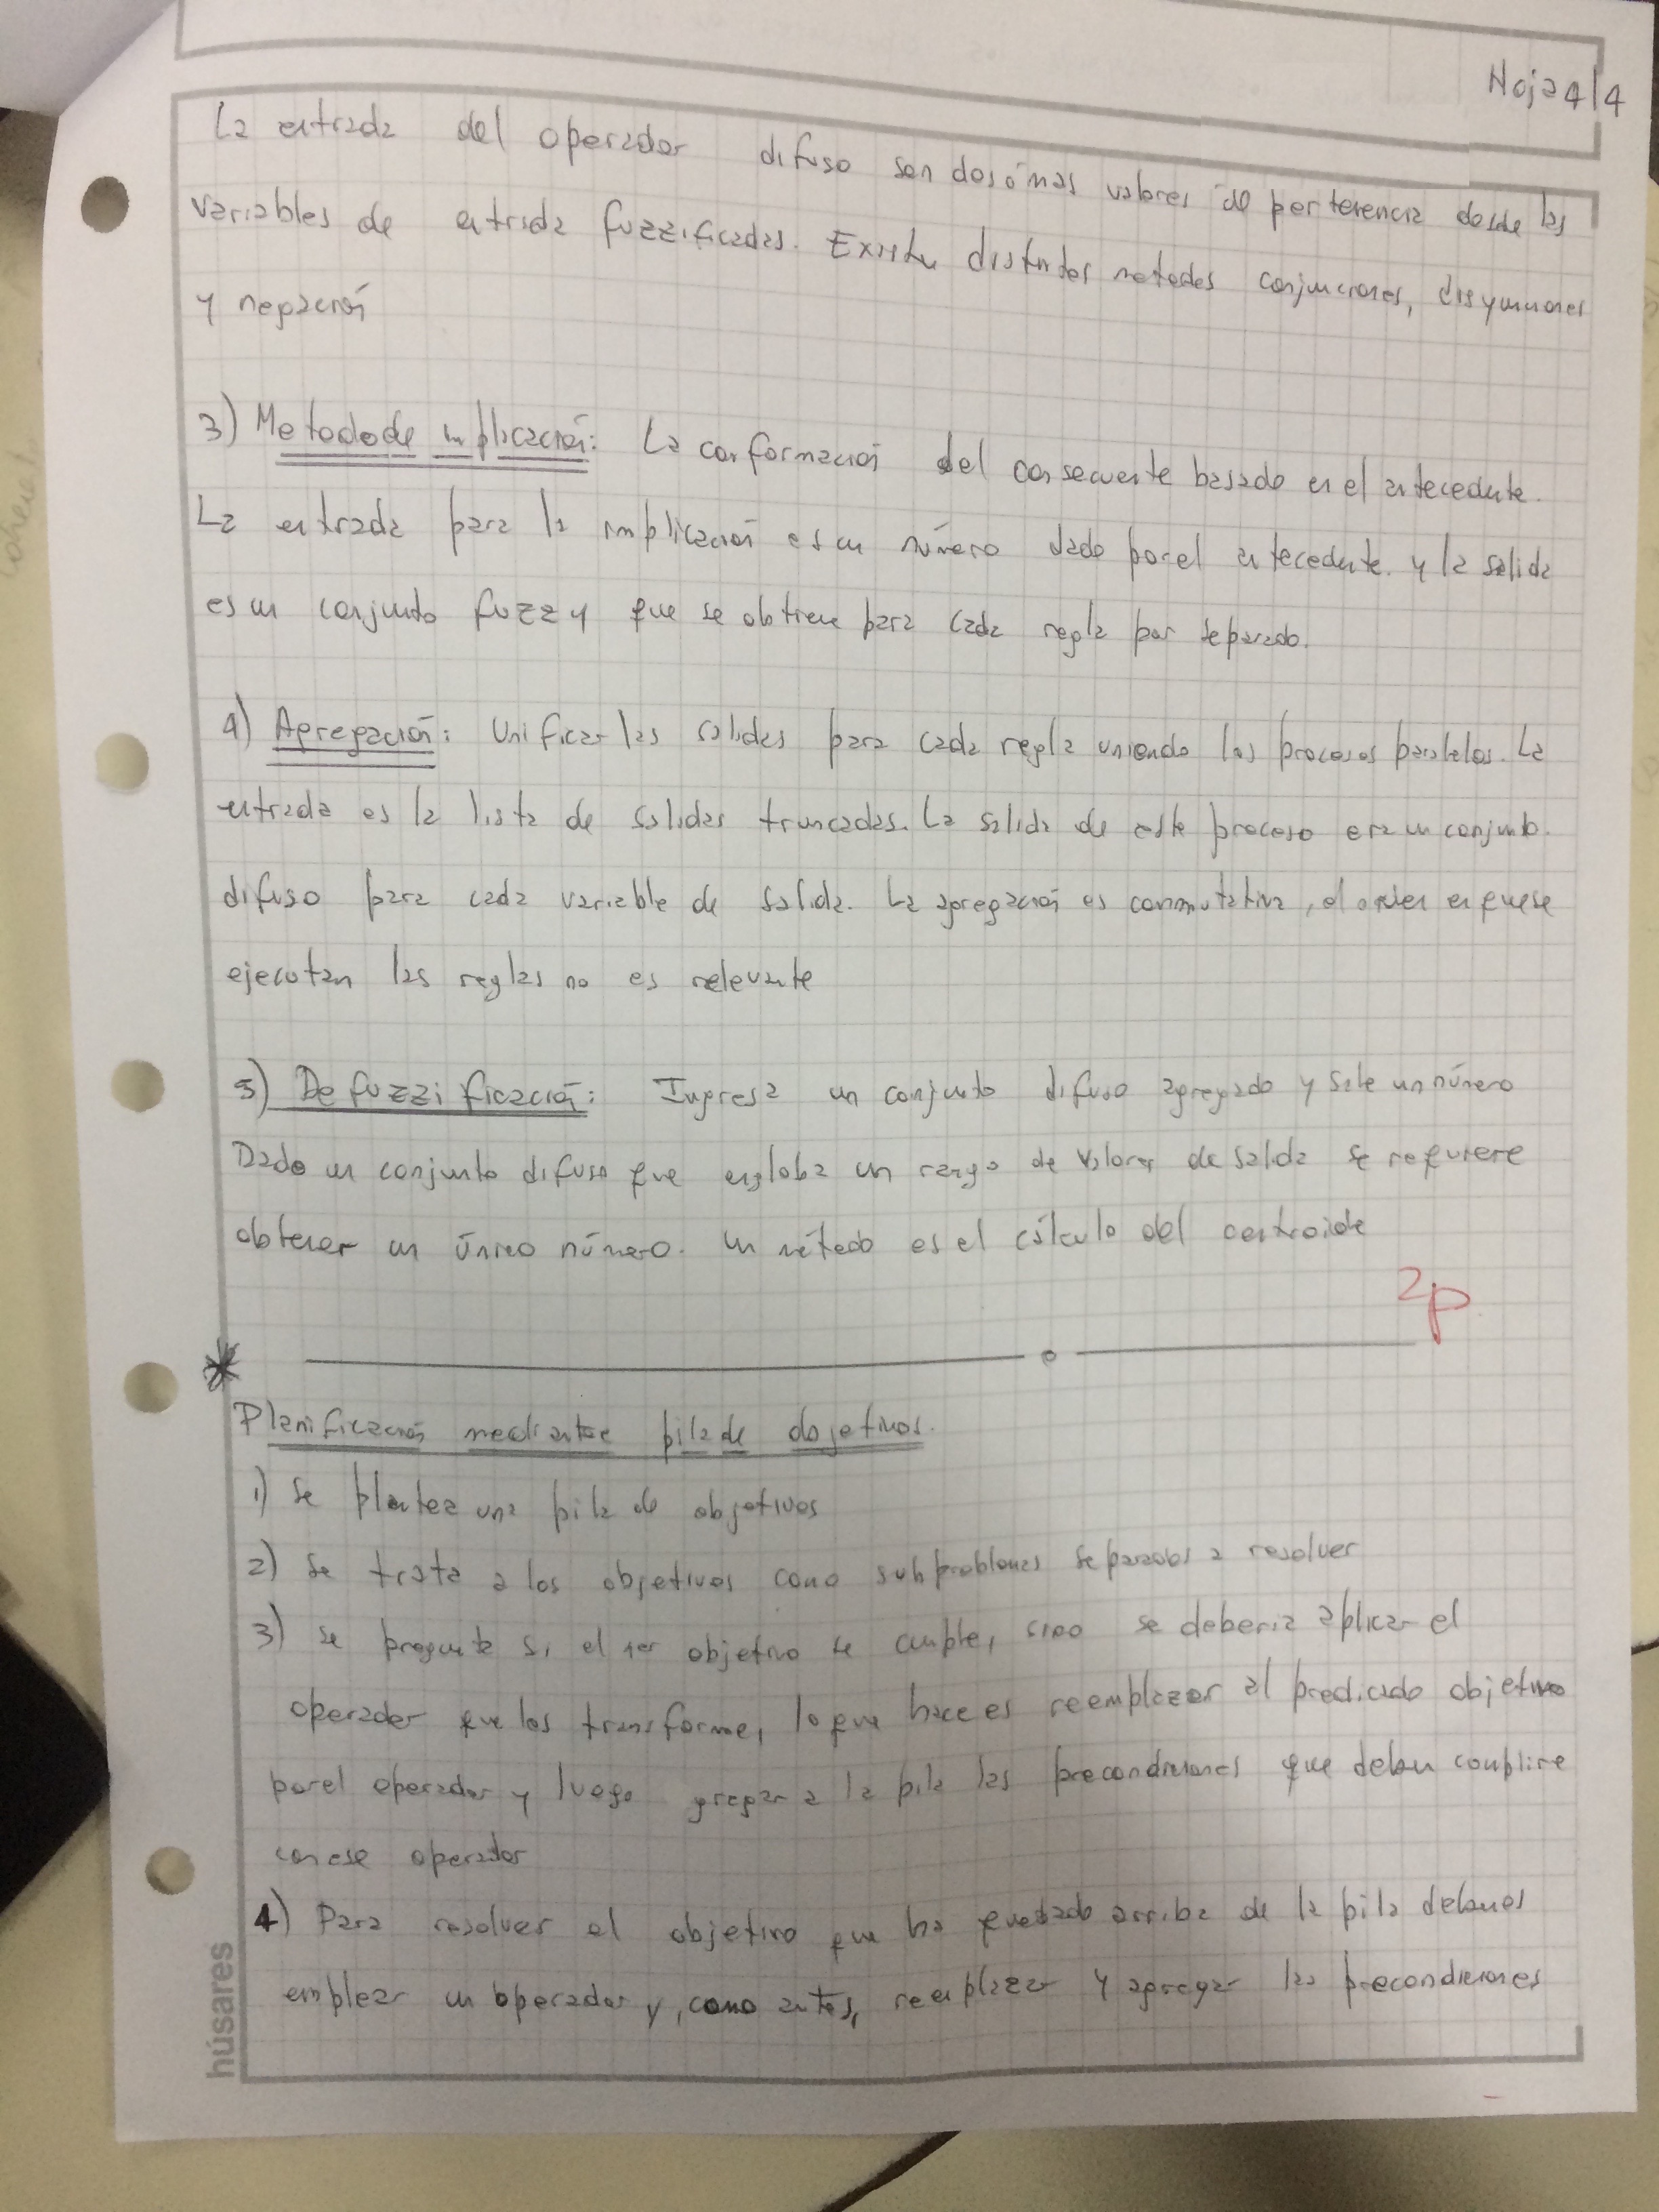 Hoja 4/4
La entrada del operador difuso son dos ó más valores de pertenencia desde las
variables de entrada fuzzificadas. Existen distintos metodos conjunciones, disyunciones
y negación
3) Metodo de implicación: La conformación del consecuente basado en el antecedente.
La entrada para la implicación es un número dado por el antecedente. y la salida
es un conjunto fuzzy que se obtiene para cada regla por separado.
4) Agregación: Unificar las salidas para cada regla uniendo los procesos paralelos. La
entrada es la lista de salidas truncadas. La salida de este proceso era un conjunto.
difuso para cada variable de salida. La agregación es conmutativa, el orden en que se
ejecutan las reglas no es relevante
5) Defuzzificación: Ingresa un conjunto difuso agregado y sale un número
Dado un conjunto difuso que engloba un rango de valores de salida se requiere
obtener un único número. Un método es el cálculo del centroide
2p
Planificación mediante pila de objetivos.
1) Se plantea una pila de objetivos
2) Se trata a los objetivos como subproblemas separados a resolver
3) se pregunta si el 1er objetivo se cumple, sino se deberia aplicar el
operador que los transforme, lo que hace es reemplazar al predicado objetivo
por el operador y luego gregar a la pila las precondiciones que deben
con ese operador
4) Para resolver el objetivo que ha quedado arriba de la pila debemos
emplear un operador y, como antes, reemplazar y agregar las precondiciones
húsares